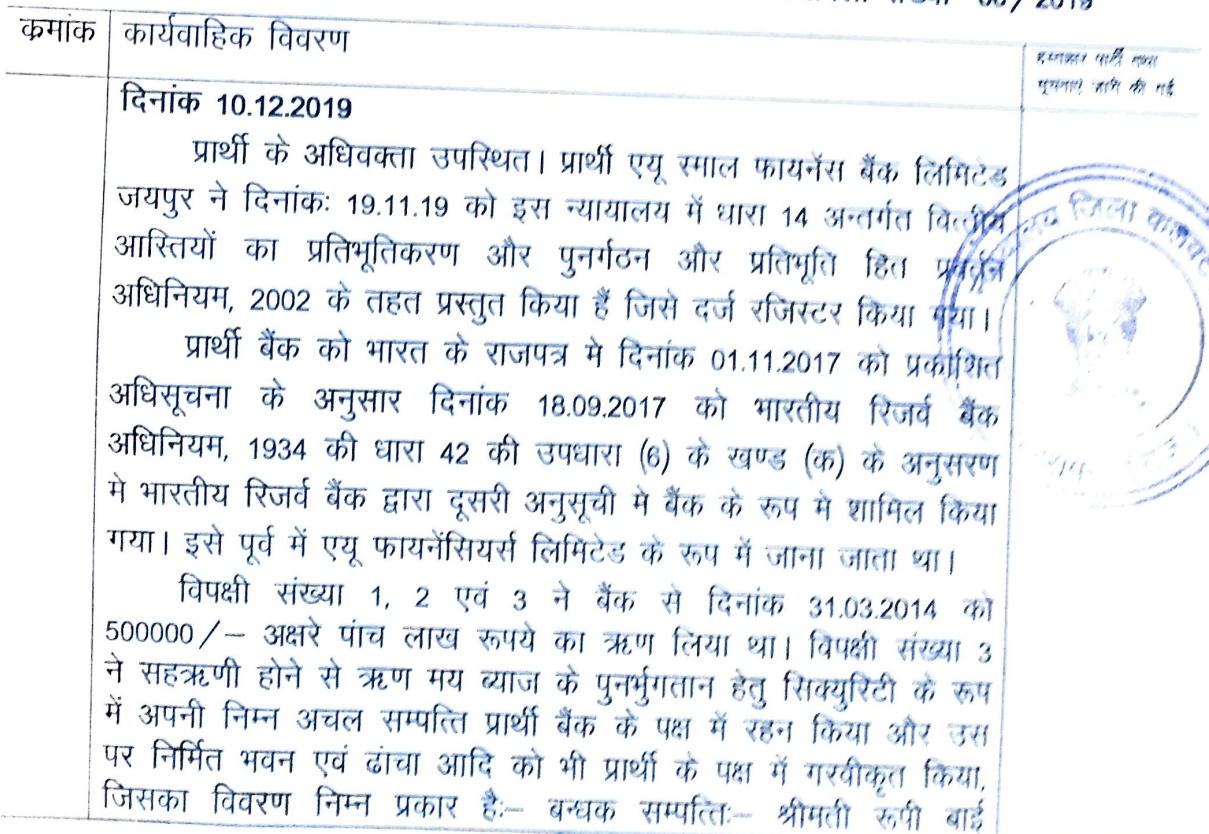 संख्या 66/2019
क्रमांक कार्यवाहिक विवरण
हस्ताक्षर पार्टी तथा
सूचनाएं जारी की गई
दिनांक 10.12.2019
प्रार्थी के अधिवक्ता उपस्थित। प्रार्थी एयू स्माल फायनेंस बैंक लिमिटेड
जयपुर ने दिनांकः 19.11.19 को इस न्यायालय में धारा 14 अन्तर्गत वित्तीय
आस्तियों का प्रतिभूतिकरण और पुनर्गठन और प्रतिभूति हित प्रवर्तन
अधिनियम, 2002 के तहत प्रस्तुत किया हैं जिसे दर्ज रजिस्टर किया गया।
प्रार्थी बैंक को भारत के राजपत्र मे दिनांक 01.11.2017 को प्रकाशित
अधिसूचना के अनुसार दिनांक 18.09.2017 को भारतीय रिजर्व बैंक
अधिनियम, 1934 की धारा 42 की उपधारा (6) के खण्ड (क) के अनुसरण
मे भारतीय रिजर्व बैंक द्वारा दूसरी अनुसूची मे बैंक के रूप मे शामिल किया
गया। इसे पूर्व में एयू फायनेंसियर्स लिमिटेड के रूप में जाना जाता था।
विपक्षी संख्या 1, 2 एवं 3 ने बैंक से दिनांक 31.03.2014 को
500000/– अक्षरे पांच लाख रूपये का ऋण लिया था। विपक्षी संख्या 3
ने सहऋणी होने से ऋण मय ब्याज के पुनर्भुगतान हेतु सिक्युरिटी के रूप
में अपनी निम्न अचल सम्पत्ति प्रार्थी बैंक के पक्ष में रहन किया और उस
पर निर्मित भवन एवं ढांचा आदि को भी प्रार्थी के पक्ष में गरवीकृत किया,
जिसका विवरण निम्न प्रकार हैः– बन्धक सम्पत्तिः– श्रीमती रूपी बाई
जिला